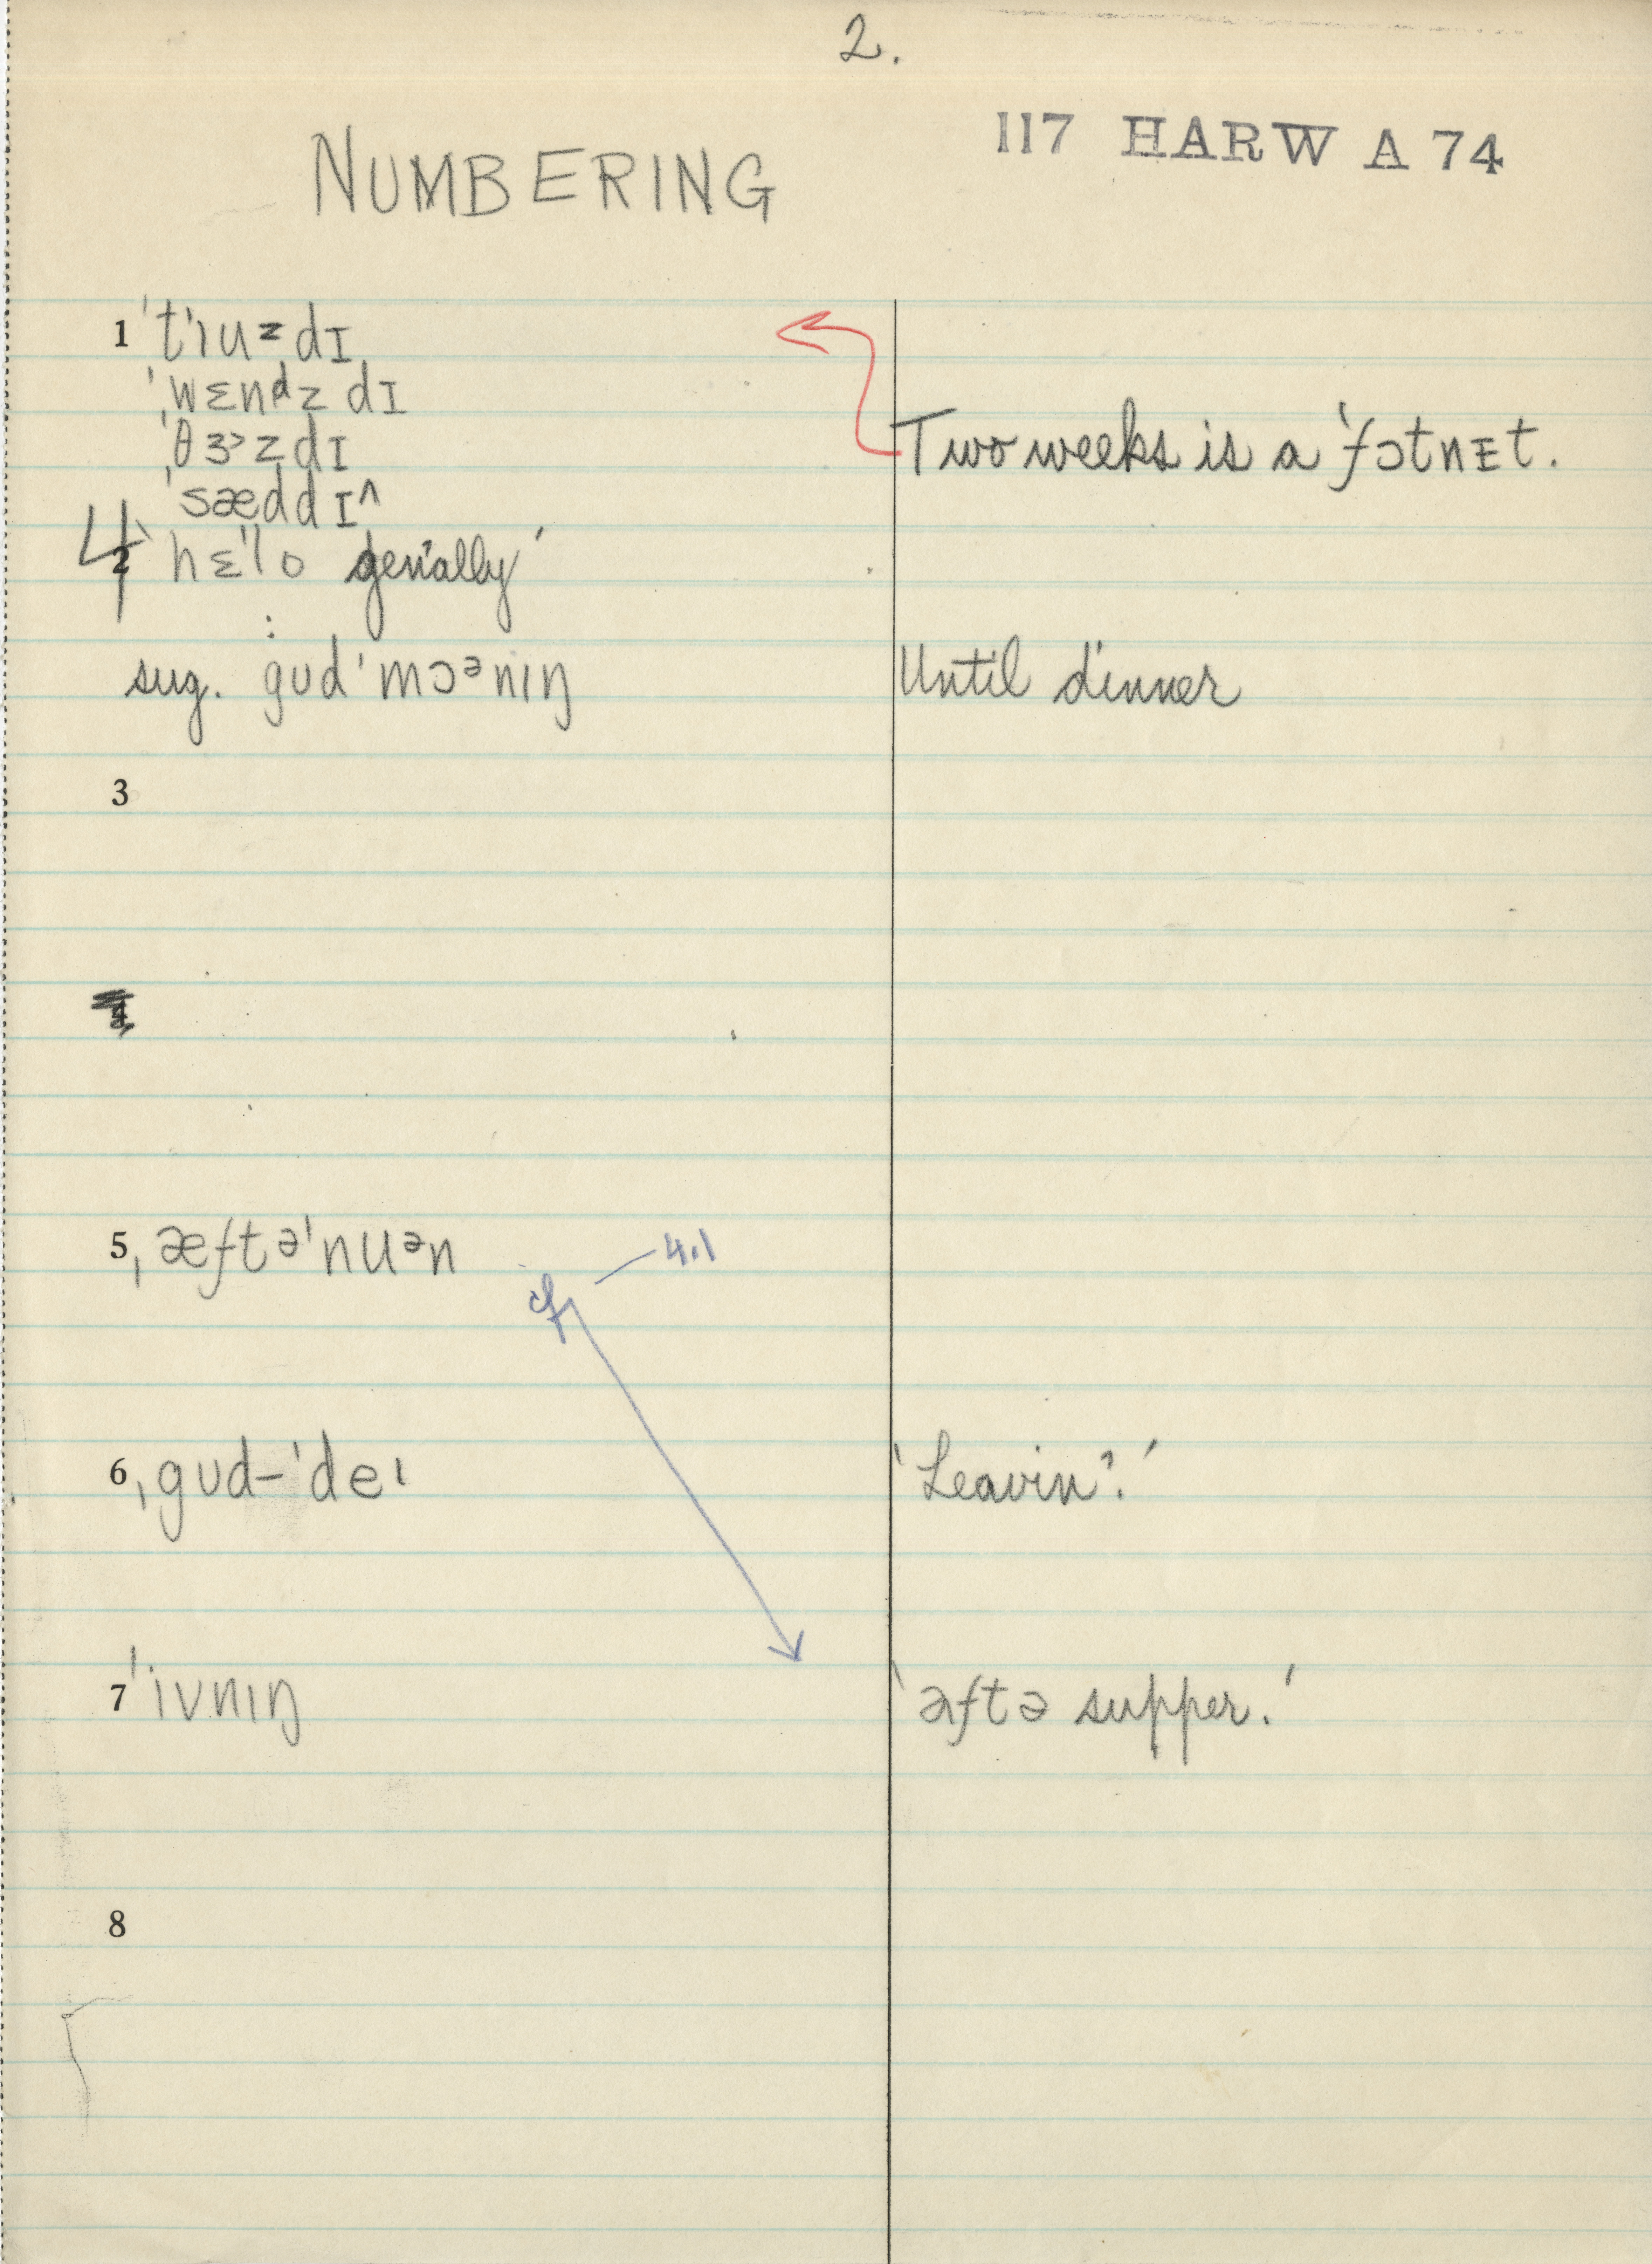 2.
NUMBERING
117 HARW A 74
1 ˈtʼɪuzdɪ
ˈwɛnᵈzdɪ
ˈθɝzdɪ
ˈsæddɪ^
Two weeks is a ˈfɔtnɪt.
4 2 ‘hɛˈlo gen'ally’
sug. : gʊdˈmɔᵊnɪŋ
Until dinner
3
4
5 ˌæftəˈnuᵊn
cf. — 4.1
6 ˌgʊd-ˈdeɪ
‘Leavin?’
7 ˈivnɪŋ
‘æftə supper.’
8